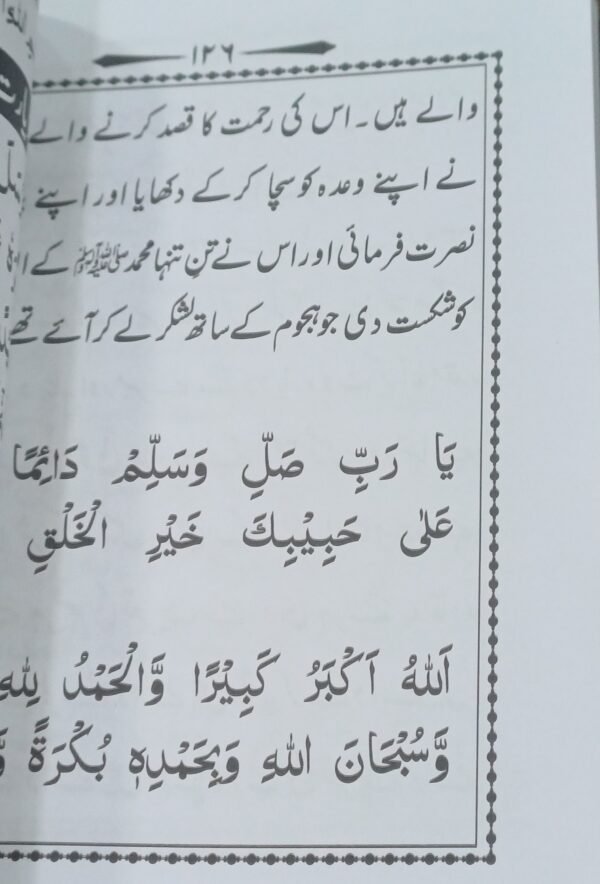 ۱۲۶
والے ہیں۔ اس کی رحمت کا قصد کرنے والے
نے اپنے وعدہ کو سچا کر کے دکھایا اور اپنے
نصرت فرمائی اور اس نے تنِ تنہا محمد ﷺ کے
کو شکست دی جو ہجوم کے ساتھ لشکر لے کر آئے تھے
یَا رَبِّ صَلِّ وَسَلِّمْ دَائِمًا
عَلٰی حَبِیْبِكَ خَیْرِ الْخَلْقِ
اَللهُ اَكْبَرُ كَبِیْرًا وَّالْحَمْدُ لِلّٰهِ
وَّسُبْحَانَ اللهِ وَبِحَمْدِهٖ بُكْرَةً